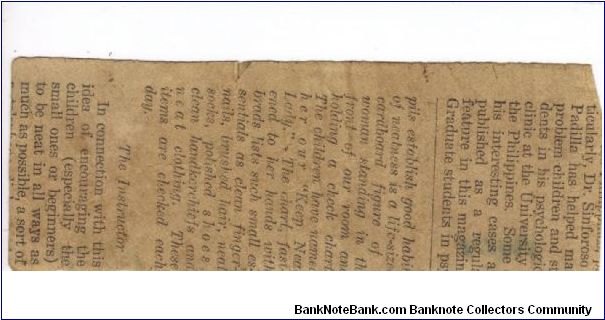 ticularly, Dr. Sinforoso
Padilla has helped ma
problem children and st
dents in his psychologic
clinic at the University
the Philippines. Some
his interesting cases a
published as a regula
feature in this magazin
Graduate students in ps
pils establish good habi
of neatness is a life-size
cardboard figure of
woman standing in th
front of our room an
holding a check chart
The children have name
her our "Keen Nea
Lady." The chart, fast
ened to her hands with
brads lists such small es-
sentials as clean finger-
nails, brushed hair, neat
socks, polished shoes
clean handkerchiefs and
neat clothing. These
items are checked each
day.
The Instructor
In connection with this
idea of encouraging the
children (especially the
small ones or beginners)
to be neat in all ways as
much as possible, a sort of
BankNoteBank.com Banknote Collectors Community